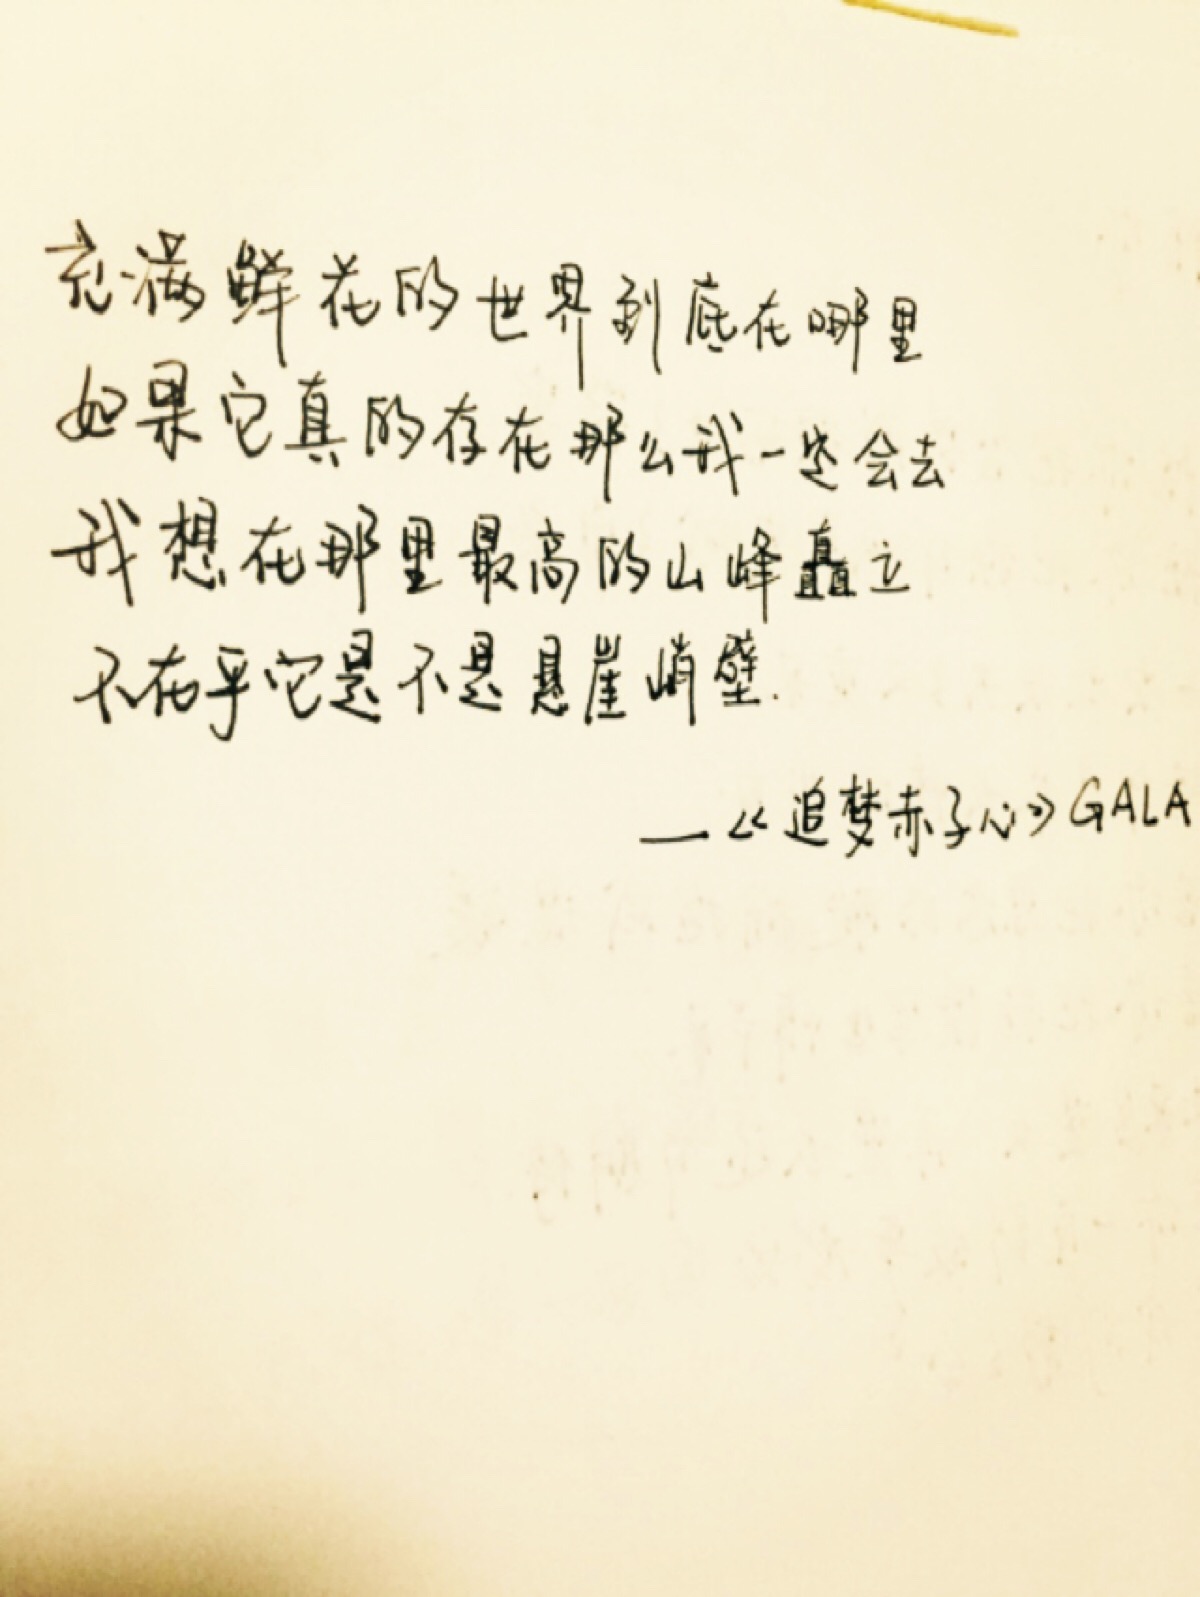 充满鲜花的世界到底在哪里
如果它真的存在那么我一定会去
我想在那里最高的山峰矗立
不在乎它是不是悬崖峭壁.
—《追梦赤子心》GALA